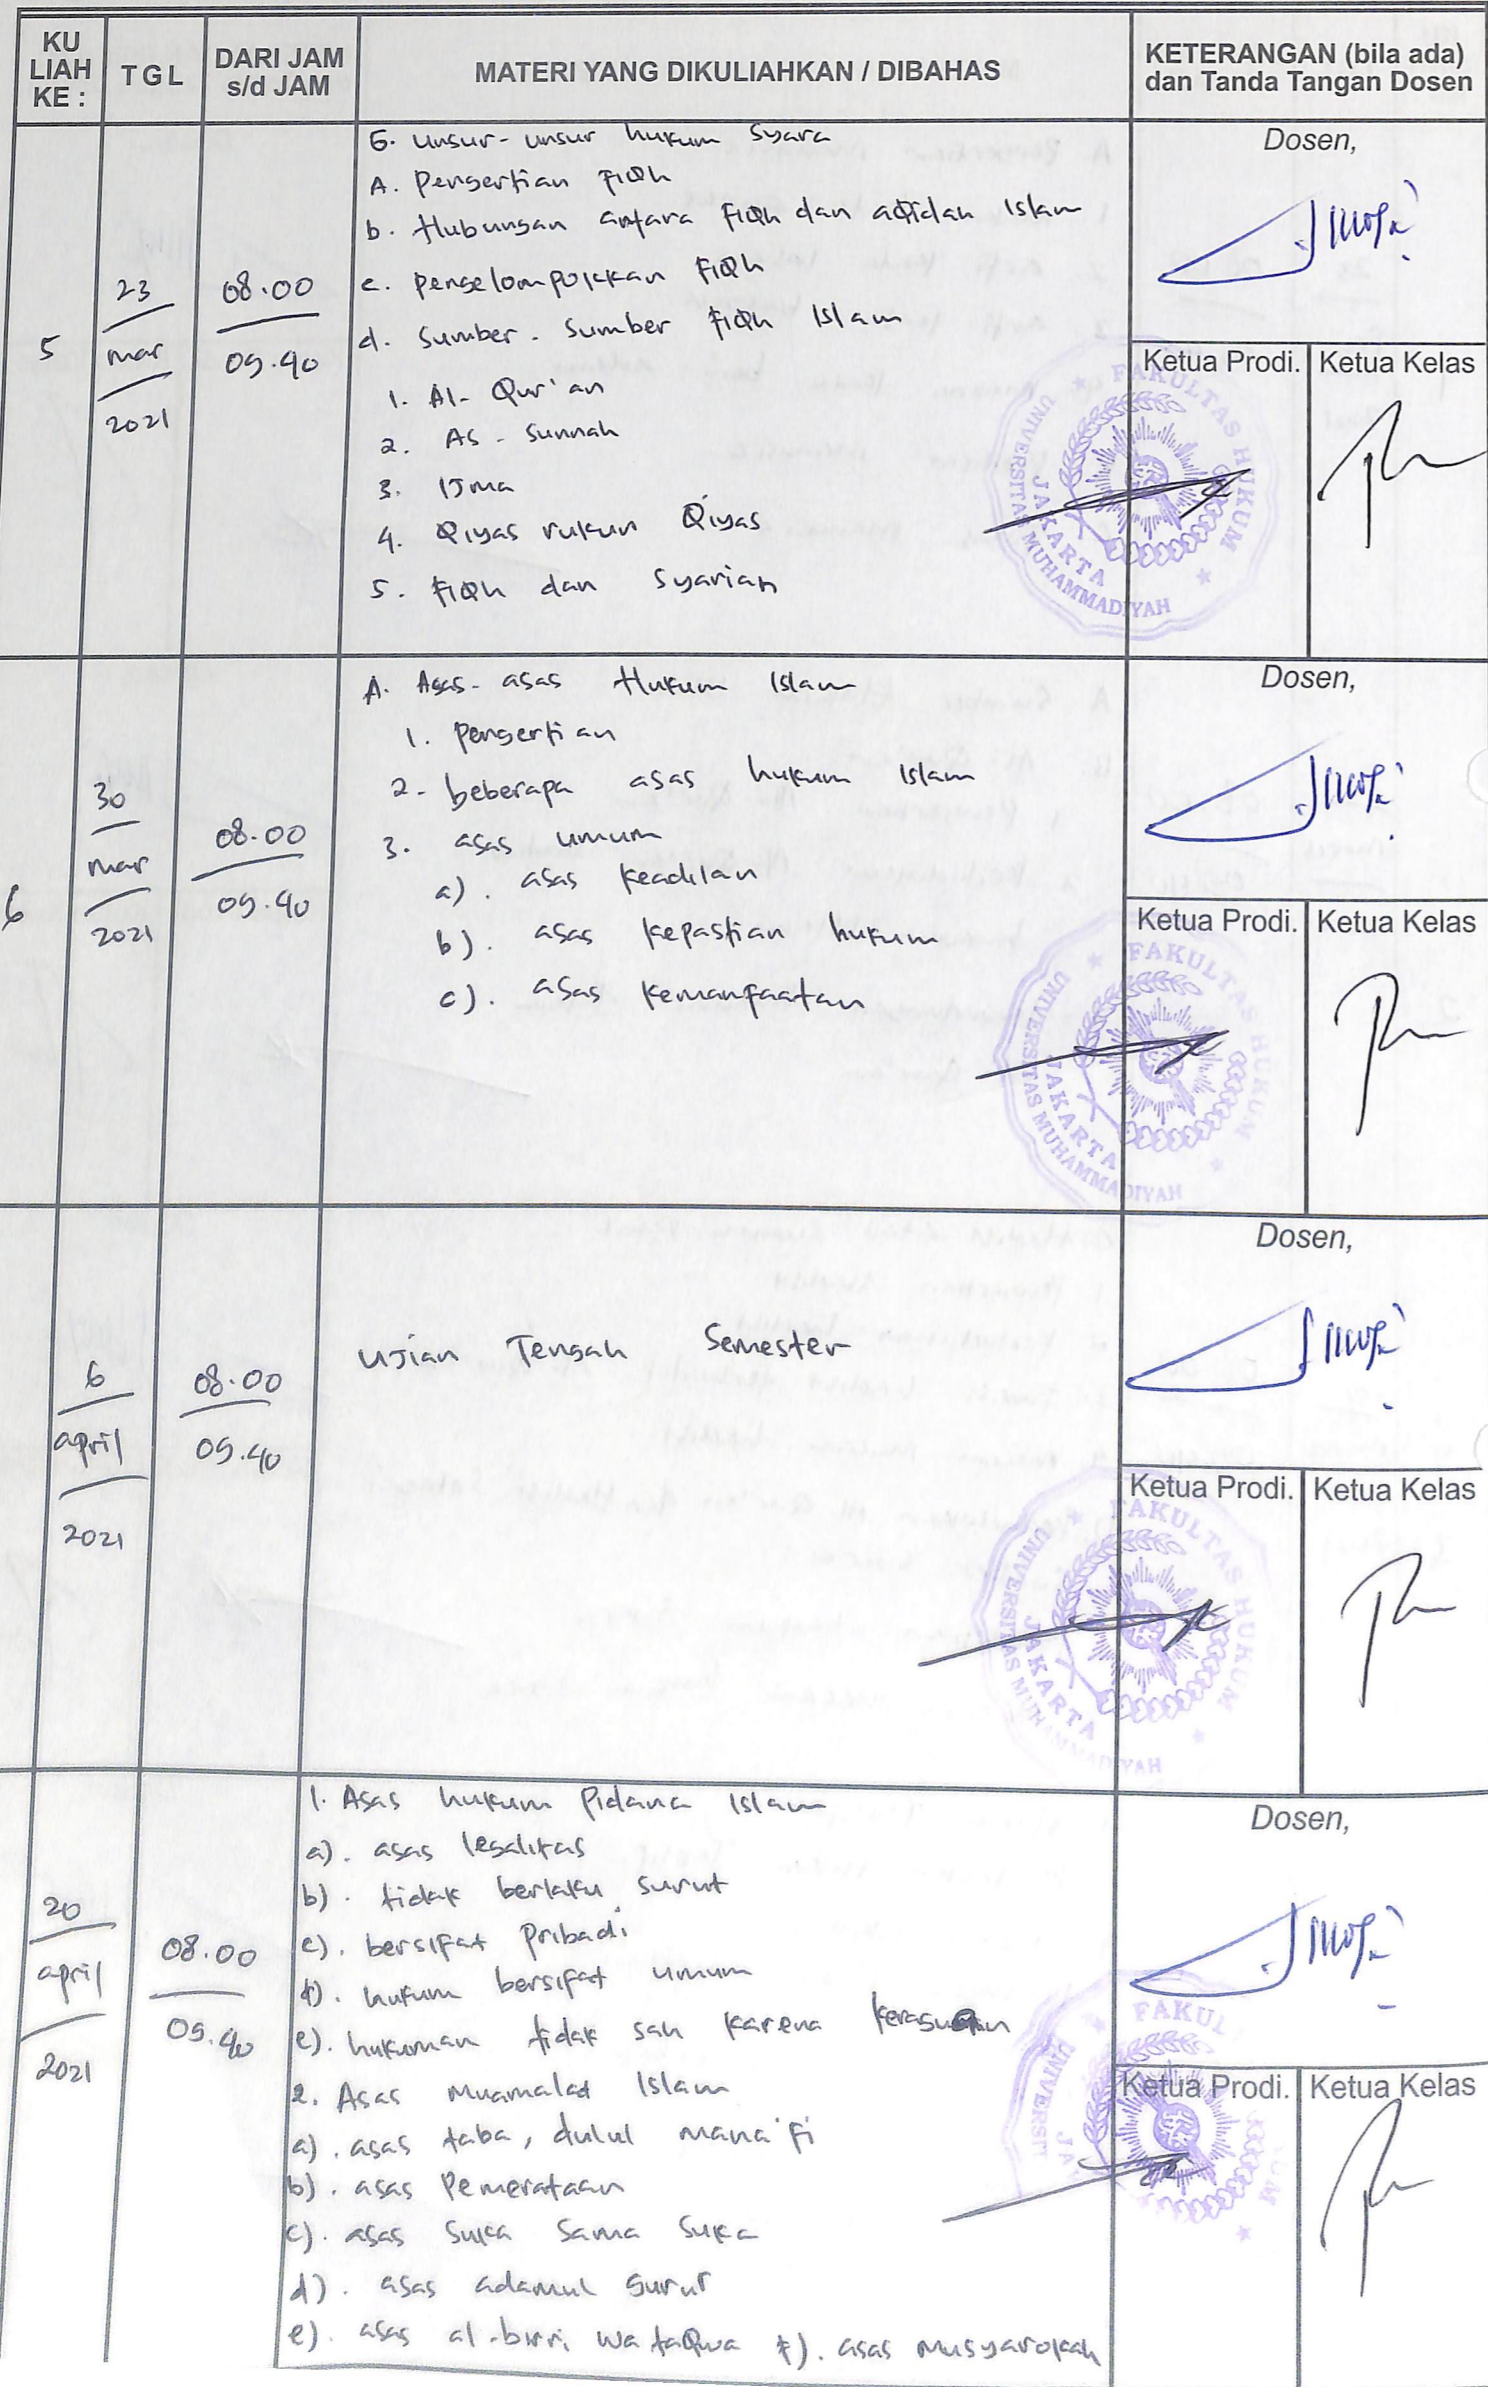 KU LIAH KE :
TGL
DARI JAM s/d JAM
MATERI YANG DIKULIAHKAN / DIBAHAS
KETERANGAN (bila ada) dan Tanda Tangan Dosen
5
23
mar
2021
08.00
09.40
6. Unsur-unsur hukum Syara
A. Pengertian FiQh
b. Hubungan antara FiQh dan aQidah Islam
c. Pengelompokkan FiQh
d. Sumber-Sumber FiQh Islam
1. Al-Qur'an
2. As-Sunnah
3. IJma
4. Qiyas rukun Qiyas
5. FiQh dan Syariah
Dosen,
Ketua Prodi.
Ketua Kelas
FAKULTAS HUKUM
UNIVERSITAS MUHAMMADIYAH
JAKARTA
6
30
mar
2021
08.00
09.40
A. Asas-asas Hukum Islam
1. Pengertian
2. beberapa asas hukum Islam
3. asas umum
a). asas Keadilan
b). asas Kepastian hukum
c). asas Kemanfaatan
Dosen,
Ketua Prodi.
Ketua Kelas
FAKULTAS HUKUM
UNIVERSITAS MUHAMMADIYAH
JAKARTA
6
april
2021
08.00
09.40
UJian Tengah Semester
Dosen,
Ketua Prodi.
Ketua Kelas
FAKULTAS HUKUM
UNIVERSITAS MUHAMMADIYAH
JAKARTA
20
april
2021
08.00
09.40
1. Asas hukum Pidana Islam
a). asas legalitas
b). tidak berlaku surut
c). bersifat Pribadi
d). hukum bersifat umum
e). hukuman tidak sah karena
2. Asas Muamalat Islam
a). asas taba, dulul mana'fi
b). asas Pemerataan
c). asas Suka Sama Suka
d). asas adamul gurur
e). asas al-birri wa taQwa f). asas musyarokah
Dosen,
Ketua Prodi.
Ketua Kelas
FAKUL
UNIVERSIT
JA